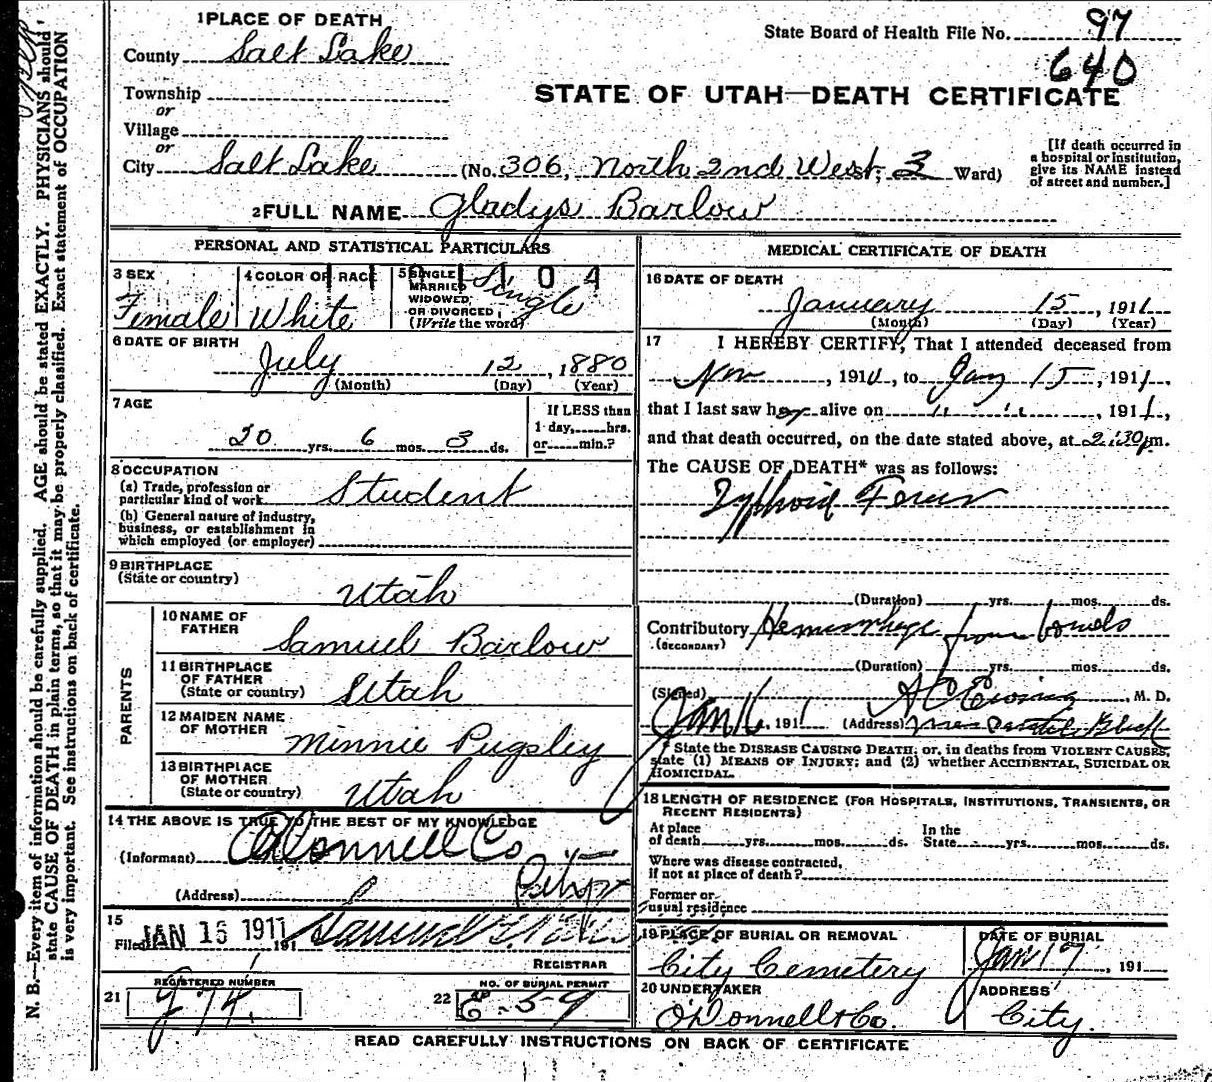 1 PLACE OF DEATH
County Salt Lake
State Board of Health File No. 97
640
Township
or
Village
or
STATE OF UTAH—DEATH CERTIFICATE
City Salt Lake (No. 306, North 2nd West St; 3 Ward)
[If death occurred in
a hospital or institution,
give its NAME instead
of street and number.]
2 FULL NAME Gladys Barlow
PERSONAL AND STATISTICAL PARTICULARS
3 SEX
Female
4 COLOR OR RACE
White
5 SINGLE
MARRIED
WIDOWED,
OR DIVORCED
(Write the word)
Single
104
6 DATE OF BIRTH
July 12, 1880
(Month) (Day) (Year)
7 AGE
20 yrs. 6 mos. 3 ds.
If LESS than
1 day, hrs.
or min.?
8 OCCUPATION
(a) Trade, profession or
particular kind of work Student
(b) General nature of industry,
business, or establishment in
which employed (or employer)
9 BIRTHPLACE
(State or country)
Utah
PARENTS
10 NAME OF
FATHER
Samuel Barlow
11 BIRTHPLACE
OF FATHER
(State or country) Utah
12 MAIDEN NAME
OF MOTHER
Minnie Pugsley
13 BIRTHPLACE
OF MOTHER
(State or country) Utah
14 THE ABOVE IS TRUE TO THE BEST OF MY KNOWLEDGE
(Informant) O'Donnell Co
(Address)
15
Filed JAN 16 1911 191
REGISTRAR
REGISTERED NUMBER
21 J 74
NO. OF BURIAL PERMIT
22 59
MEDICAL CERTIFICATE OF DEATH
16 DATE OF DEATH
January 15, 1911
(Month) (Day) (Year)
17 I HEREBY CERTIFY, That I attended deceased from
Nov, 1910, to Jany 15, 1911,
that I last saw her alive on " ", 1911,
and that death occurred, on the date stated above, at 2:30 pm.
The CAUSE OF DEATH* was as follows:
Typhoid Fever
(Duration) yrs. mos. ds.
Contributory Hemorrhage from bowels
(SECONDARY)
(Duration) yrs. mos. ds.
(Signed) A C Ewing, M. D.
Jan 16, 1911 (Address)
* State the DISEASE CAUSING DEATH, or, in deaths from VIOLENT CAUSES,
state (1) MEANS OF INJURY; and (2) whether ACCIDENTAL, SUICIDAL OR
HOMICIDAL.
18 LENGTH OF RESIDENCE (FOR HOSPITALS, INSTITUTIONS, TRANSIENTS, OR
RECENT RESIDENTS)
At place
of death yrs. mos. ds.
In the
State yrs. mos. ds.
Where was disease contracted,
if not at place of death?
Former or
usual residence
19 PLACE OF BURIAL OR REMOVAL
City Cemetery
DATE OF BURIAL
Jan 17, 191
20 UNDERTAKER
O'Donnell & Co.
ADDRESS
City.
READ CAREFULLY INSTRUCTIONS ON BACK OF CERTIFICATE
N. B.—Every item of information should be carefully supplied. AGE should be stated EXACTLY. PHYSICIANS should
state CAUSE OF DEATH in plain terms, so that it may be properly classified. Exact statement of OCCUPATION
is very important. See instructions on back of certificate.